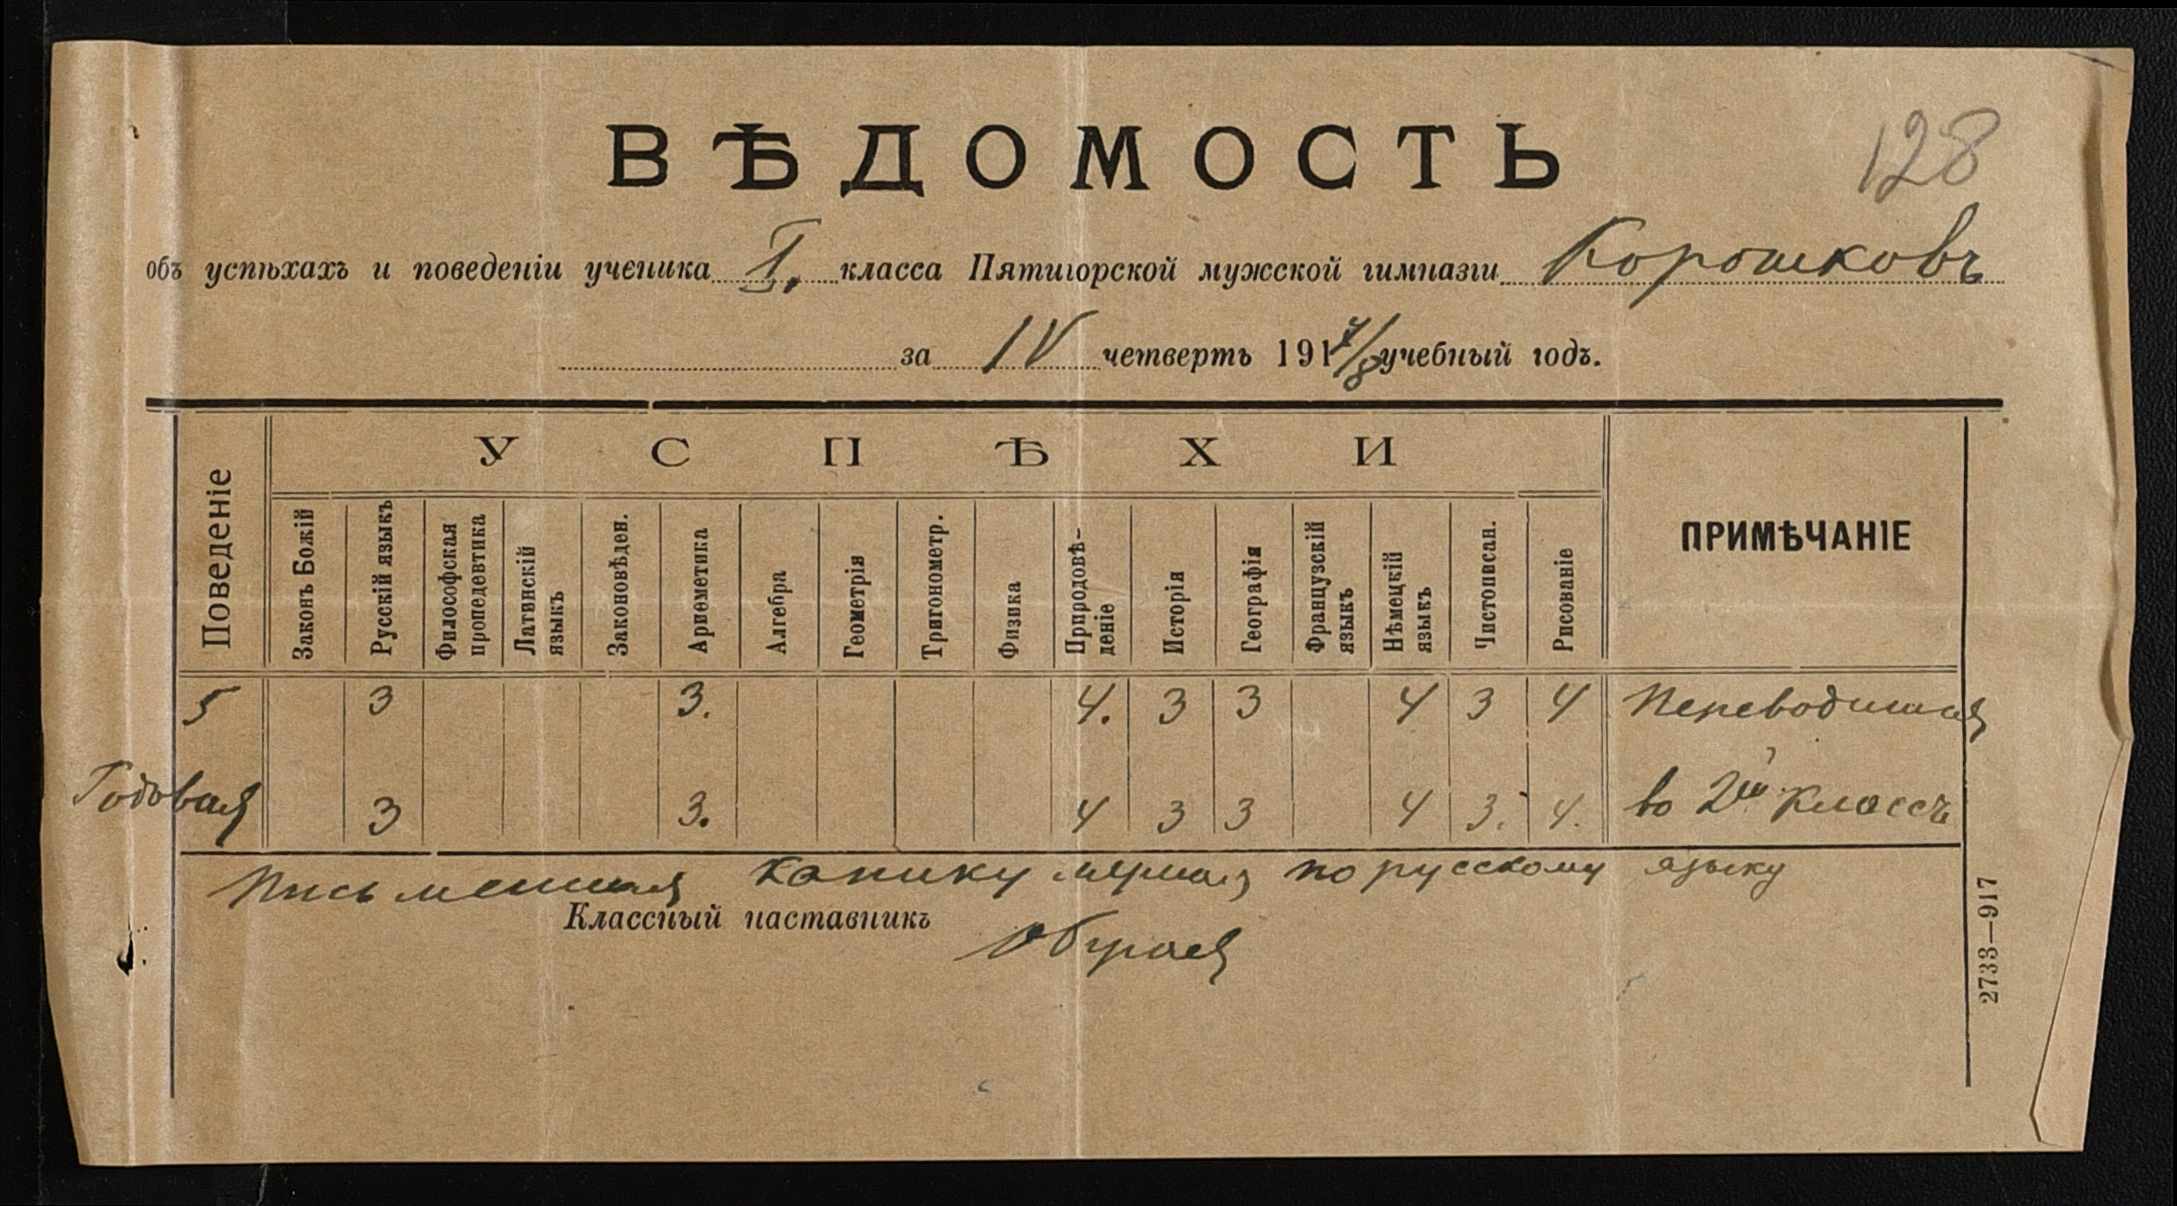 128
ВѢДОМОСТЬ
объ успѣхахъ и поведеніи ученика I. класса Пятигорской мужской гимназіи Корошковъ
за IV четверть 1917/8 учебный годъ.
Поведеніе
УСПѢХИ
ПРИМѢЧАНІЕ
Законъ Божій
Русскій языкъ
Философская пропедевтика
Латинскій языкъ
Законовѣден.
Ариѳметика
Алгебра
Геометрія
Тригонометр.
Физика
Природовѣ-деніе
Исторія
Географія
Французскій языкъ
Нѣмецкій языкъ
Чистописан.
Рисованіе
5 3 3. 4. 3 3 4 3 4 Переводится
Годовая 3 3. 4 3 3 4 3. 4. во 2ій классъ
Письменная по русскому языку
Классный наставникъ
2733—917